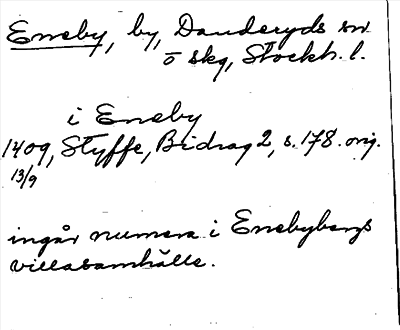 Eneby, by, Danderyds sn
o skg, Stockh. l.
i Eneby
1409, Styffe, Bidrag 2, s. 178. orig.
13/9
ingår numera i Enebybergs
villasamhälle.